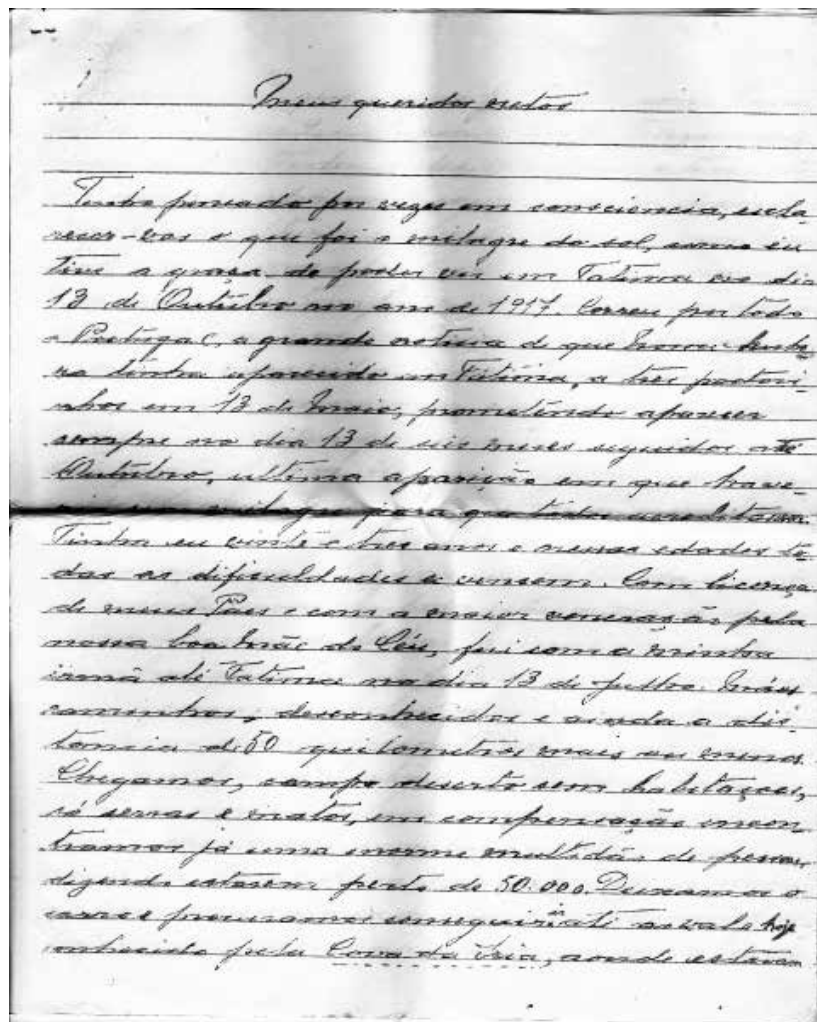 Meus queridos netos
Tenho pensado por vezes em consciencia, escla-
recer-vos o que foi o milagre do sol, como eu
tive a graça de poder ver em Fatima no dia
13 de Outúbro no ano de 1917. Correu por todo
o Portugal, a grande noticia de que Nossa Senho-
ra tinha aparecido em Fátima, a tres pastori-
nhos em 13 de Maio, prometendo aparecer
sempre no dia 13 de seis meses seguidos até
Outúbro, ultima aparição em que have-
ria um milagre para que todos acreditassem.
Tinha eu vinte e tres anos e nessas edades to-
das as dificuldades se vencem. Com licença
de meus Pães e com a maior veneração pela
nossa boa Mãe do Céu, fui com a minha
irmã até Fatima no dia 13 de Julho. Máus
caminhos, desconhecidos e ainda a dis-
tancia de 50 quilometros mais ou menos.
Chegamos, campo deserto sem habitaçoes,
só serras e matos, em compensação encon
tramos já uma enorme multidão de pessoas
dizendo estarem perto de 50.000. Deixamos o
carro e procuramos conseguir ir até ao vale hoje
conhecido pela Cova da Iria, aonde estavam